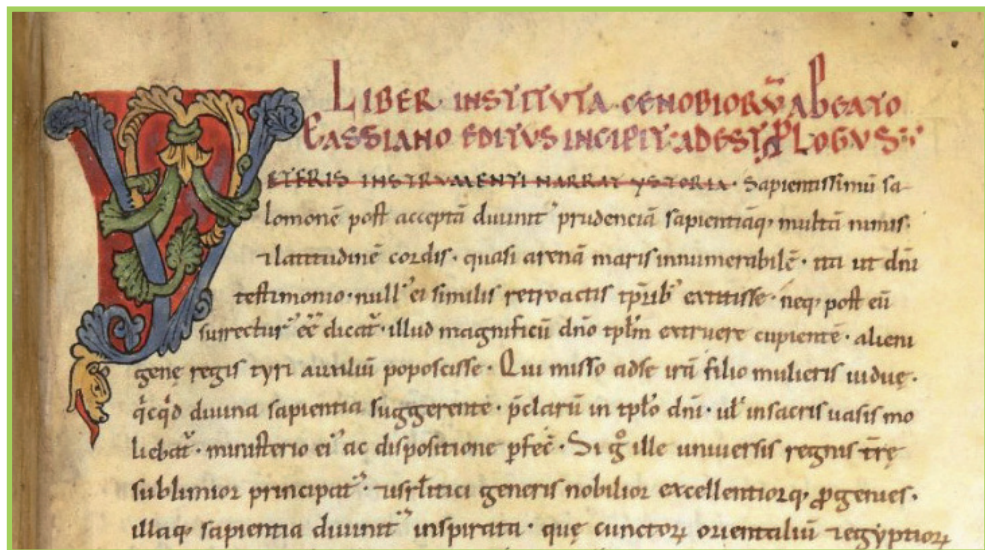 LIBER INSTITVTA CENOBIORṼ A BEATO
CASSIANO EDITVS INCIPIT ADEST PLOGVS
VETERIS INSTRVMENTI NARRAT YSTORIA· Sapientissimū sa-
lomonē post acceptā diuinitꝰ prudenciā sapientiāq; multā nimis·
⁊latitudinē cordis· quasi arenā maris innumerabilē· ita ut dn̄i
testimonio· nullꝰ ei similis retroactis tꝑibꝰ extitisse· neq; post eū
surrecturꝰ eē dicat᷑· illud magnificū dn̄o tp̄lm extruere cupientē· alieni
genę regis tyri auxiliū poposcisse· Qui misso adse irā filio mulieris uiduę·
q̇cq̇d diuina sapientia suggerente· p̄clarū in tp̄lo dn̄i· ul̓ insacris uasis mo
liebat᷑· ministerio eiꝰ ac dispositione ꝑfec̄· Si gͦ ille uniuersis regnis tr̄ę
sublimior principatꝰ· ⁊isrl̄itici generis nobilior excellentiorq; ꝓgenies·
illaq; sapientia diuinitꝰ inspirata· quę cunctoꝝ orientaliū ⁊egyptioꝝ